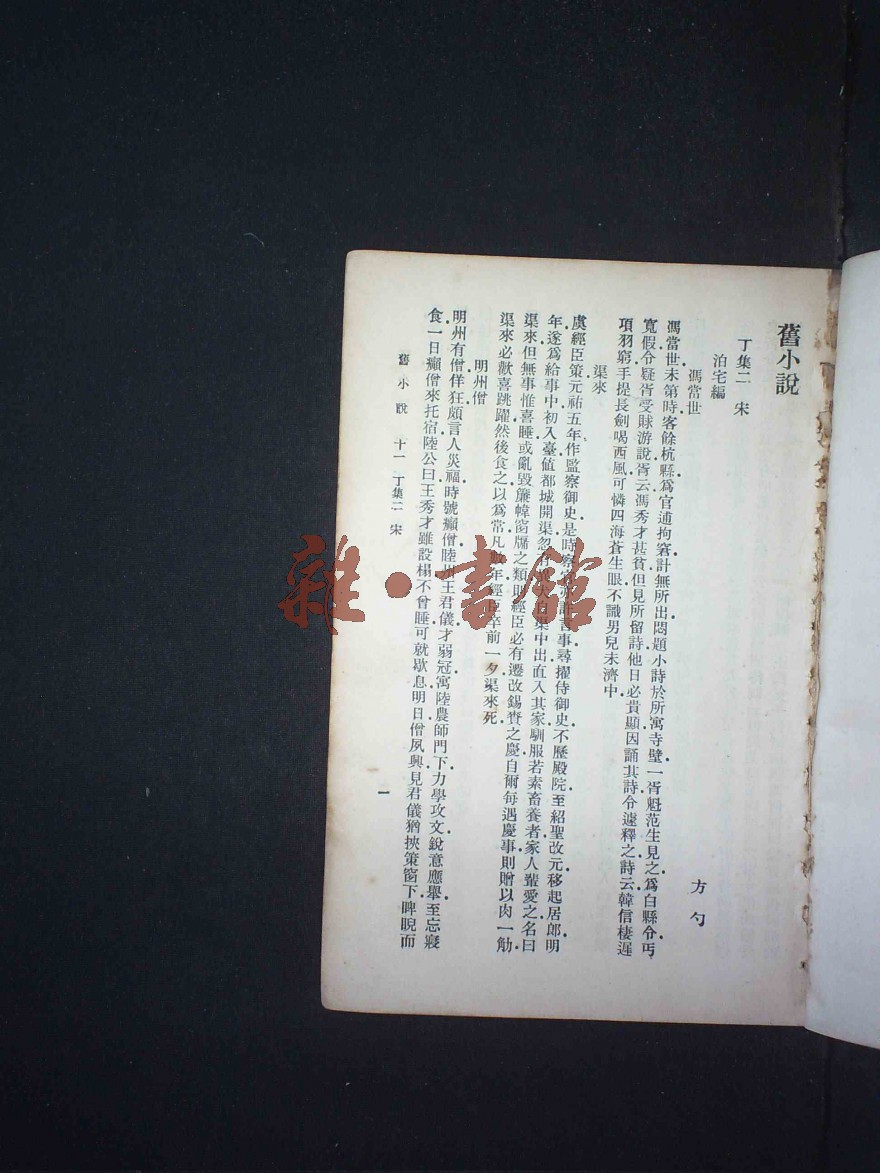 舊小說
丁集二 宋
泊宅編 方勺
馮當世
馮當世未第時客餘杭縣爲官逋拘窘計無所出悶題小詩於所寓寺壁一胥魁范生見之爲白縣令丐
寬假令疑胥受賕游說胥云馮秀才甚貧但見所留詩他日必貴顯因誦其詩令遽釋之詩云韓信棲遲
項羽窮手提長劍喝西風可憐四海蒼生眼不識男兒未濟中
渠來
虞經臣策元祐五年作監察御史是時察官亦許言事尋擢侍御史不歷殿院至紹聖改元移起居郎明
年遂爲給事中初入臺值都城開渠忽大自渠中出直入其家馴服若素畜養者家人輩愛之名曰
渠來但無事惟喜睡或亂毀簾幃窗牖之類則經臣必有遷改錫賚之慶自爾每遇慶事則贈以肉一觔
渠來必歡喜跳躍然後食之以爲常凡數年經臣卒前一夕渠來死
明州僧
明州有僧佯狂頗言人災福時號癲僧睦州王君儀才弱冠寓陸農師門下力學攻文銳意應舉至忘寢
食一日癲僧來托宿陸公曰王秀才雖設榻不曾睡可就歇息明日僧夙興見君儀猶挾策窗下睥睨而
舊小說 十一 丁集二 宋
一
雜·書館